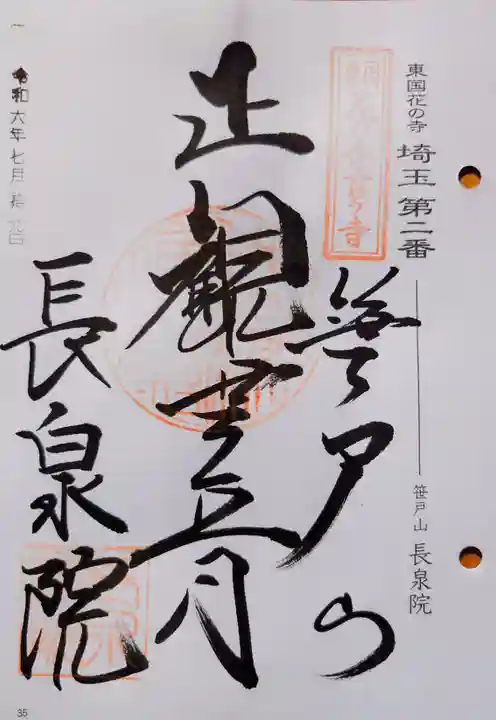 東国花の寺 埼玉第二番
笹戸山 長泉院
笹戸山
正観世音
長泉院
令和六年七月拾九日
35